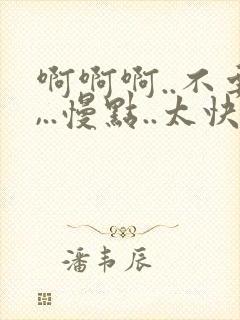 啊啊啊..不要
...慢點..太快
潘韦辰